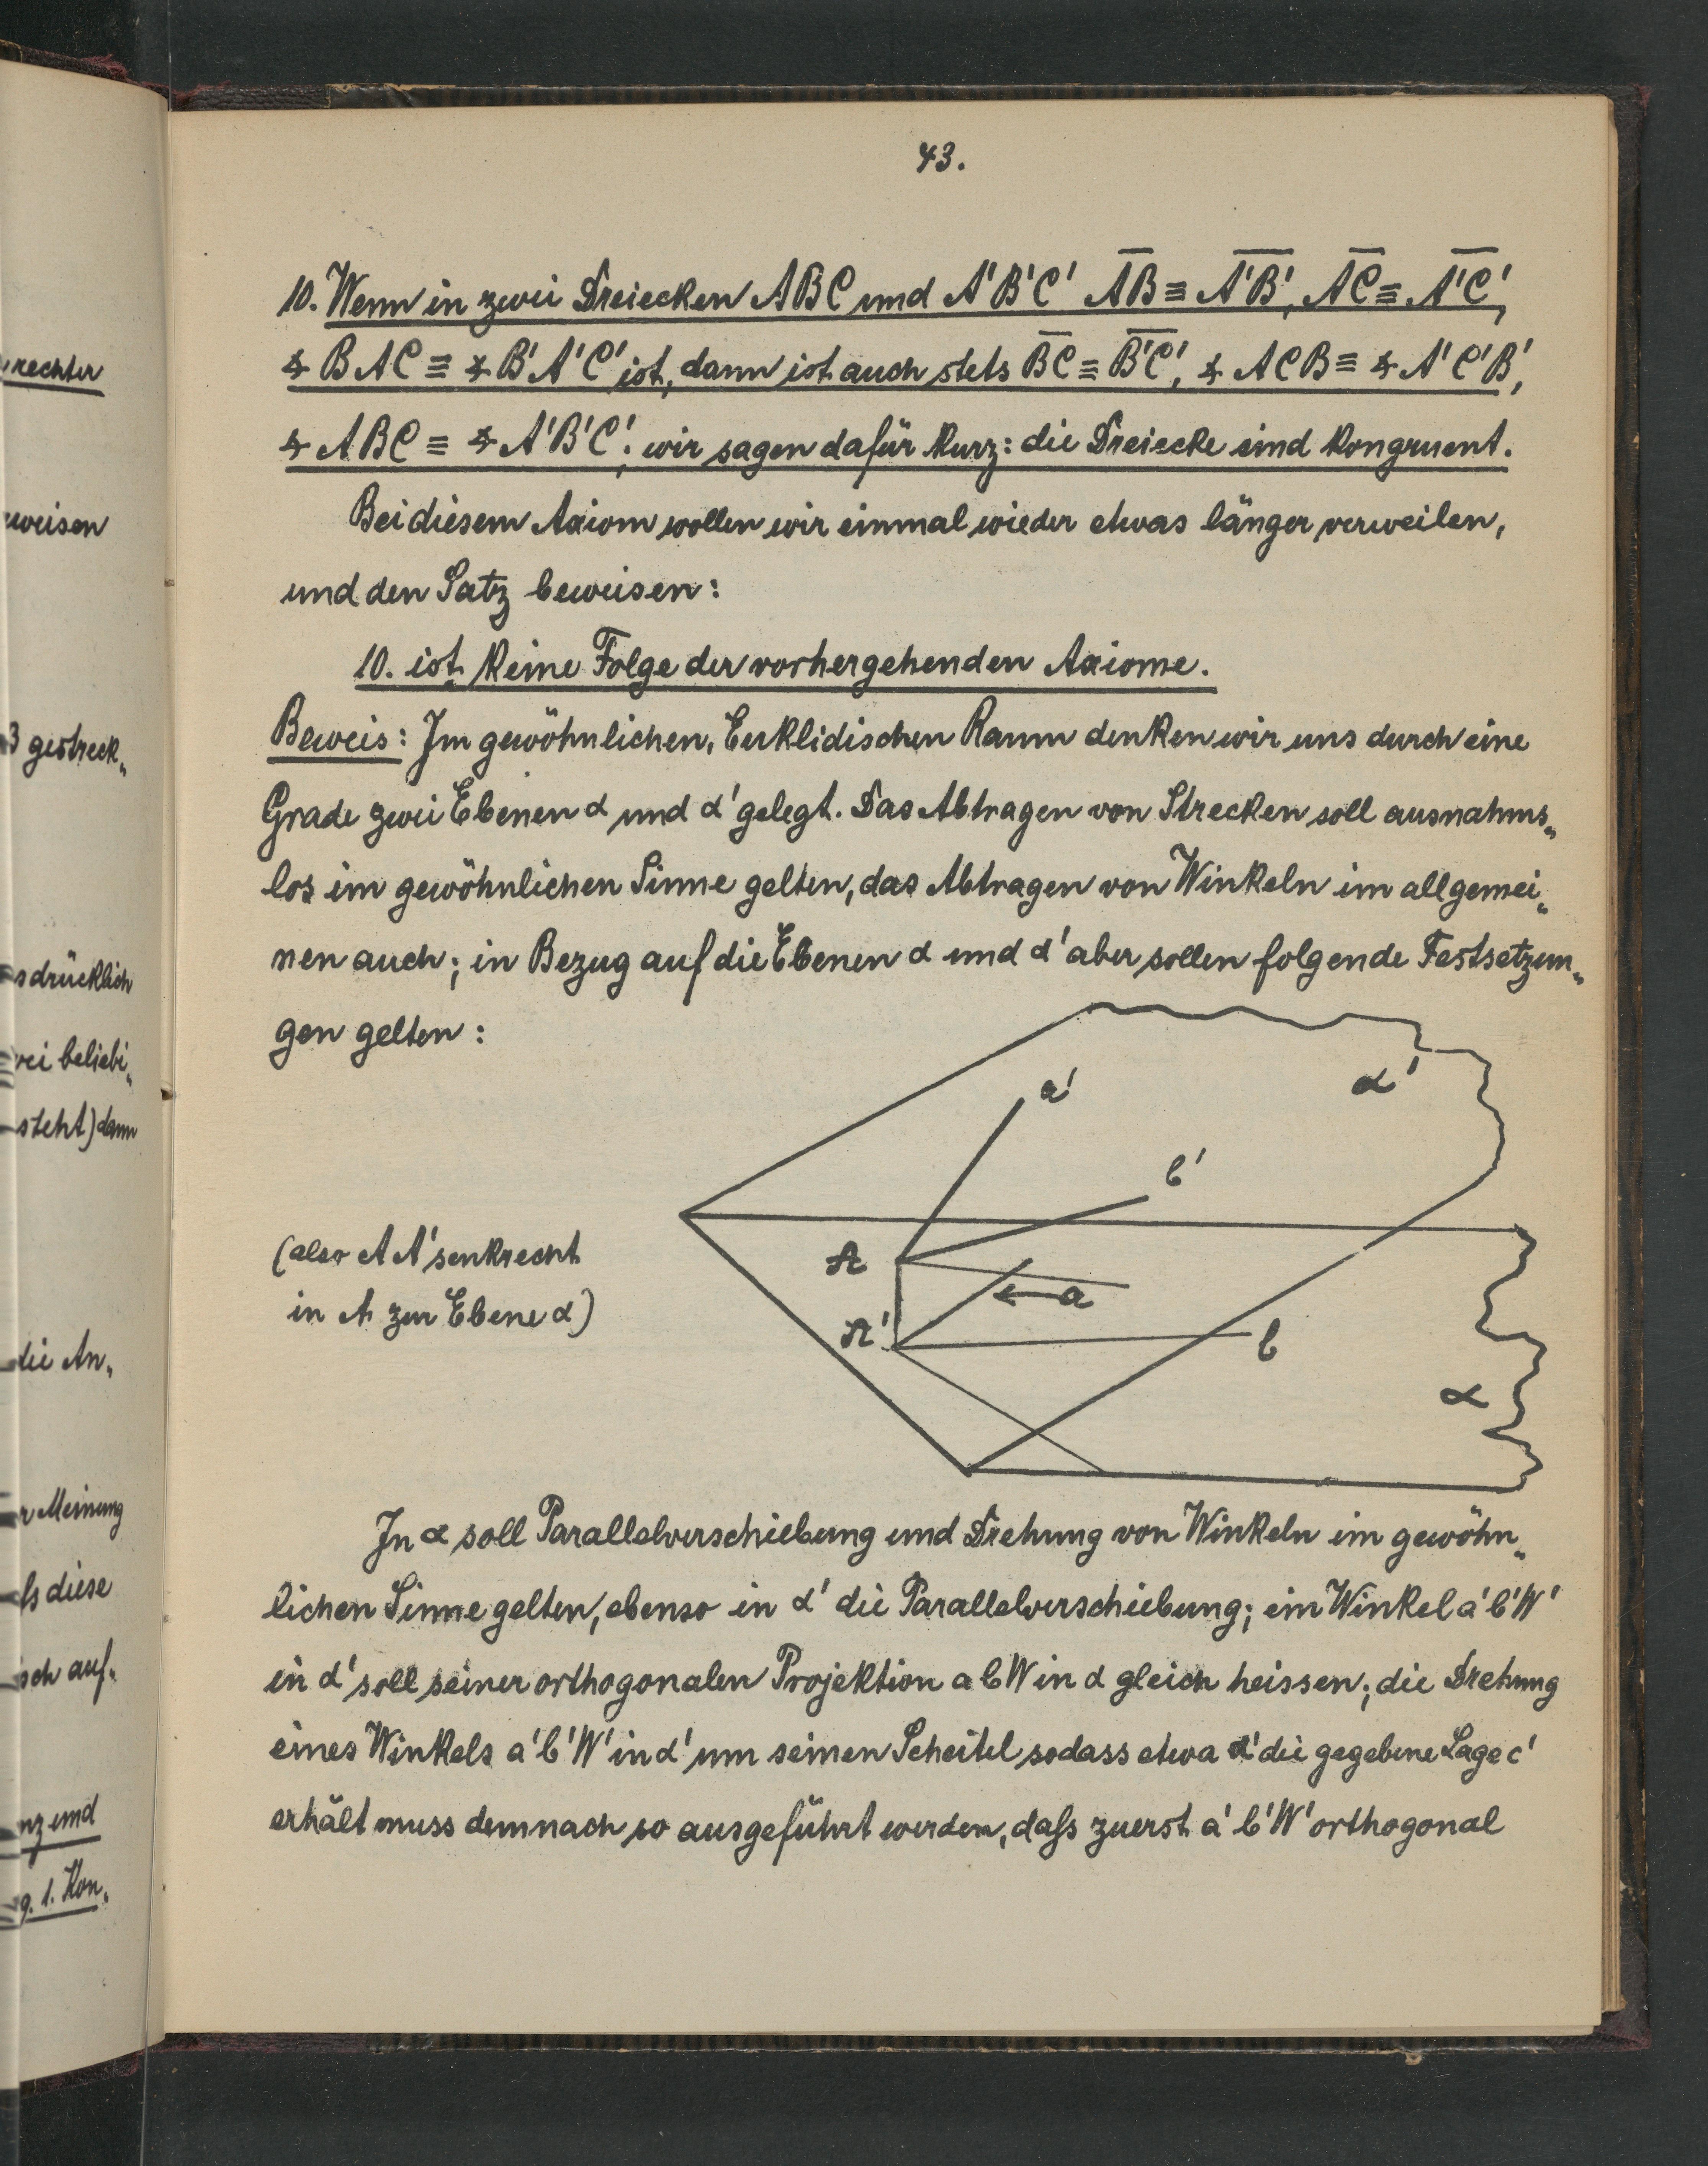 43.
10. Wenn in zwei Dreiecken ABC und A'B'C' A̅B̅ ≡ A̅'B̅', A̅C̅ ≡ A̅'C̅',
∢ BAC ≡ ∢ B'A'C' ist, dann ist auch stets B̅C̅ ≡ B̅'C̅', ∢ ACB ≡ ∢ A'C'B',
∢ ABC ≡ ∢ A'B'C'; wir sagen dafür kurz: die Dreiecke sind kongruent.
Bei diesem Axiom wollen wir einmal wieder etwas länger verweilen,
und den Satz beweisen:
10. ist keine Folge der vorhergehenden Axiome.
Beweis: Im gewöhnlichen, Euklidischen Raum denken wir uns durch eine
Grade zwei Ebenen α und α' gelegt. Das Abtragen von Strecken soll ausnahms„
los im gewöhnlichen Sinne gelten, das Abtragen von Winkeln im allgemei„
nen auch; in Bezug auf die Ebenen α und α' aber sollen folgende Festsetzun„
gen gelten:
α'
a'
b'
(also AA' senkrecht
in A zur Ebene α)
A
a
A'
b
α
In α soll Parallelverschiebung und Drehung von Winkeln im gewöhn„
lichen Sinne gelten, ebenso in α' die Parallelverschiebung; ein Winkel a'b'W'
in α' soll seiner orthogonalen Projektion abW in α gleich heissen; die Drehung
eines Winkels a'b'W' in α' um seinen Scheitel sodass etwa a' die gegebene Lage c'
erhält muss demnach so ausgeführt werden, daſs zuerst a'b'W' orthogonal
rechter
weisen
3 gestreck„
sdrücklich
beliebi„
steht) dann
die An„
Meinung
ſs diese
sch auf„
nz und
g. 1. Kon„